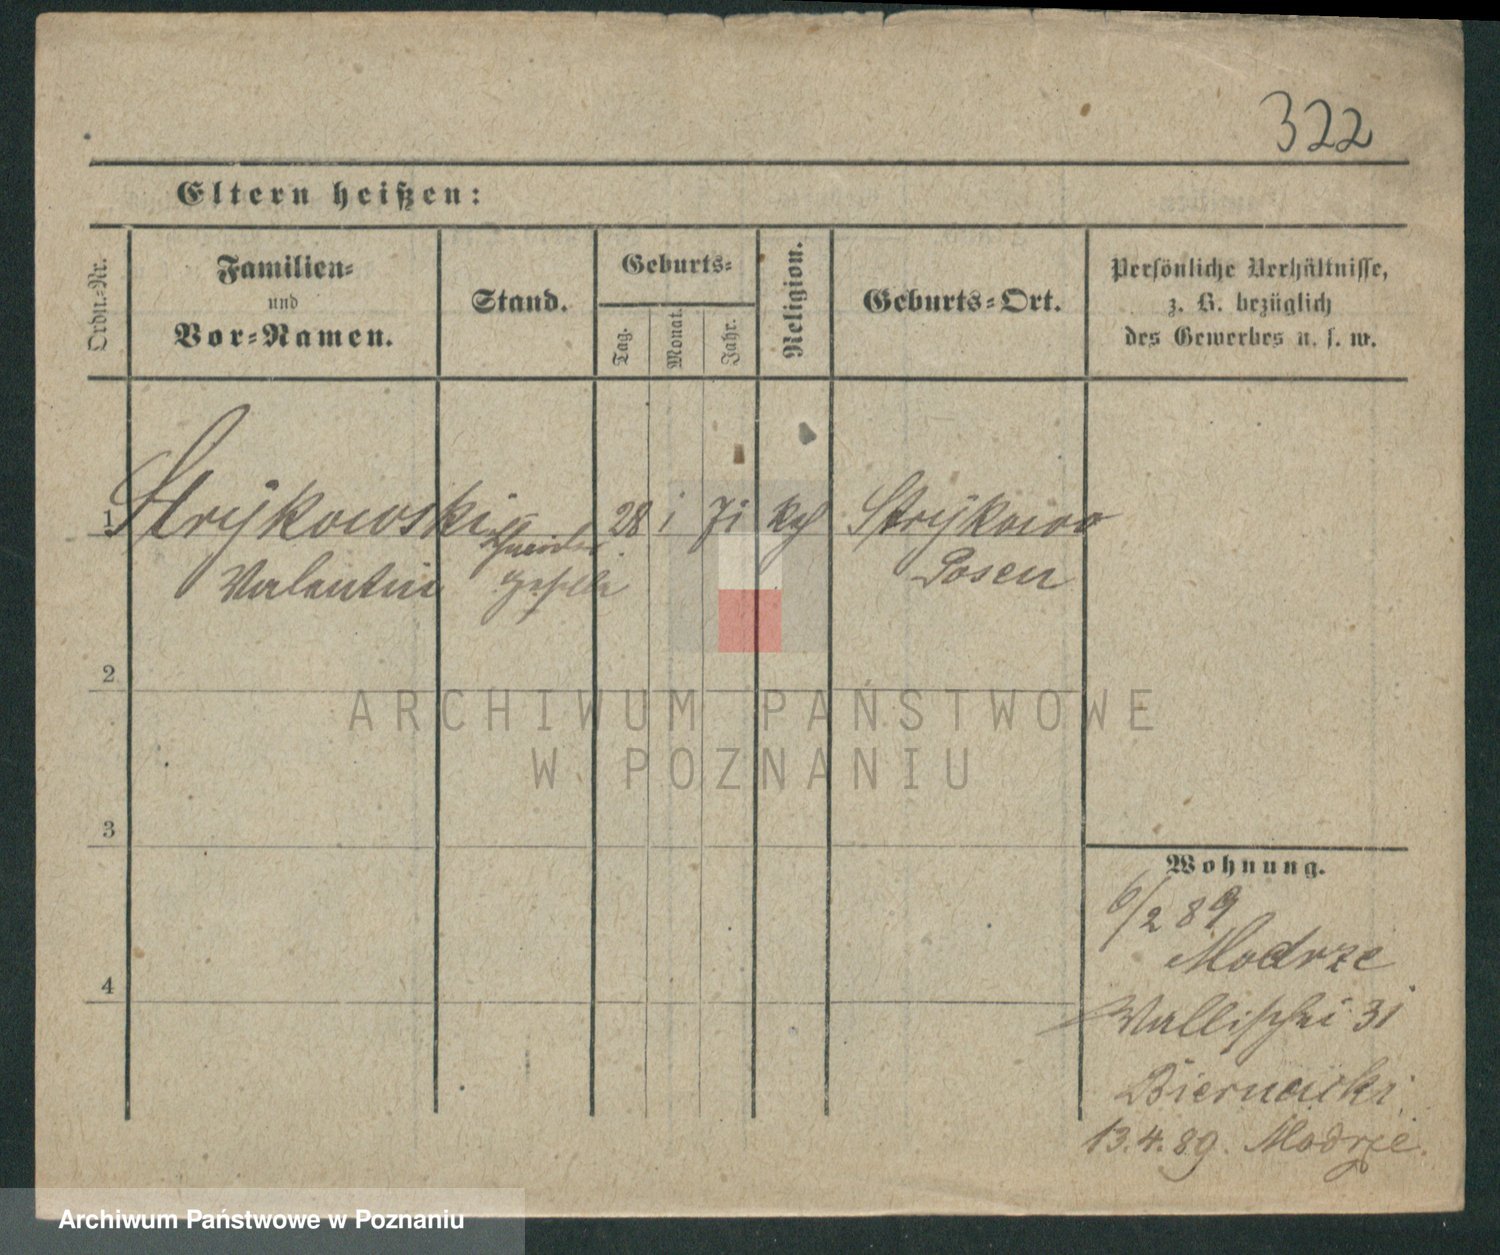 322
Eltern heißen:
Ordn.-Nr.
Familien-
und
Vor-Namen.
Stand.
Geburts-
Tag.
Monat.
Jahr.
Religion.
Geburts-Ort.
Persönliche Verhältnisse,
z. B. bezüglich
des Gewerbes u. s. w.
1 Strÿkowski Schneider 28 1 71 kath Strÿkowo
Valentin geselle Posen
2
3
4
Wohnung.
6/2 89
Modrze
Wallischei 31
Biernacki
13.4.89. Modrze.
ARCHIWUM PAŃSTWOWE
W POZNANIU
Archiwum Państwowe w Poznaniu